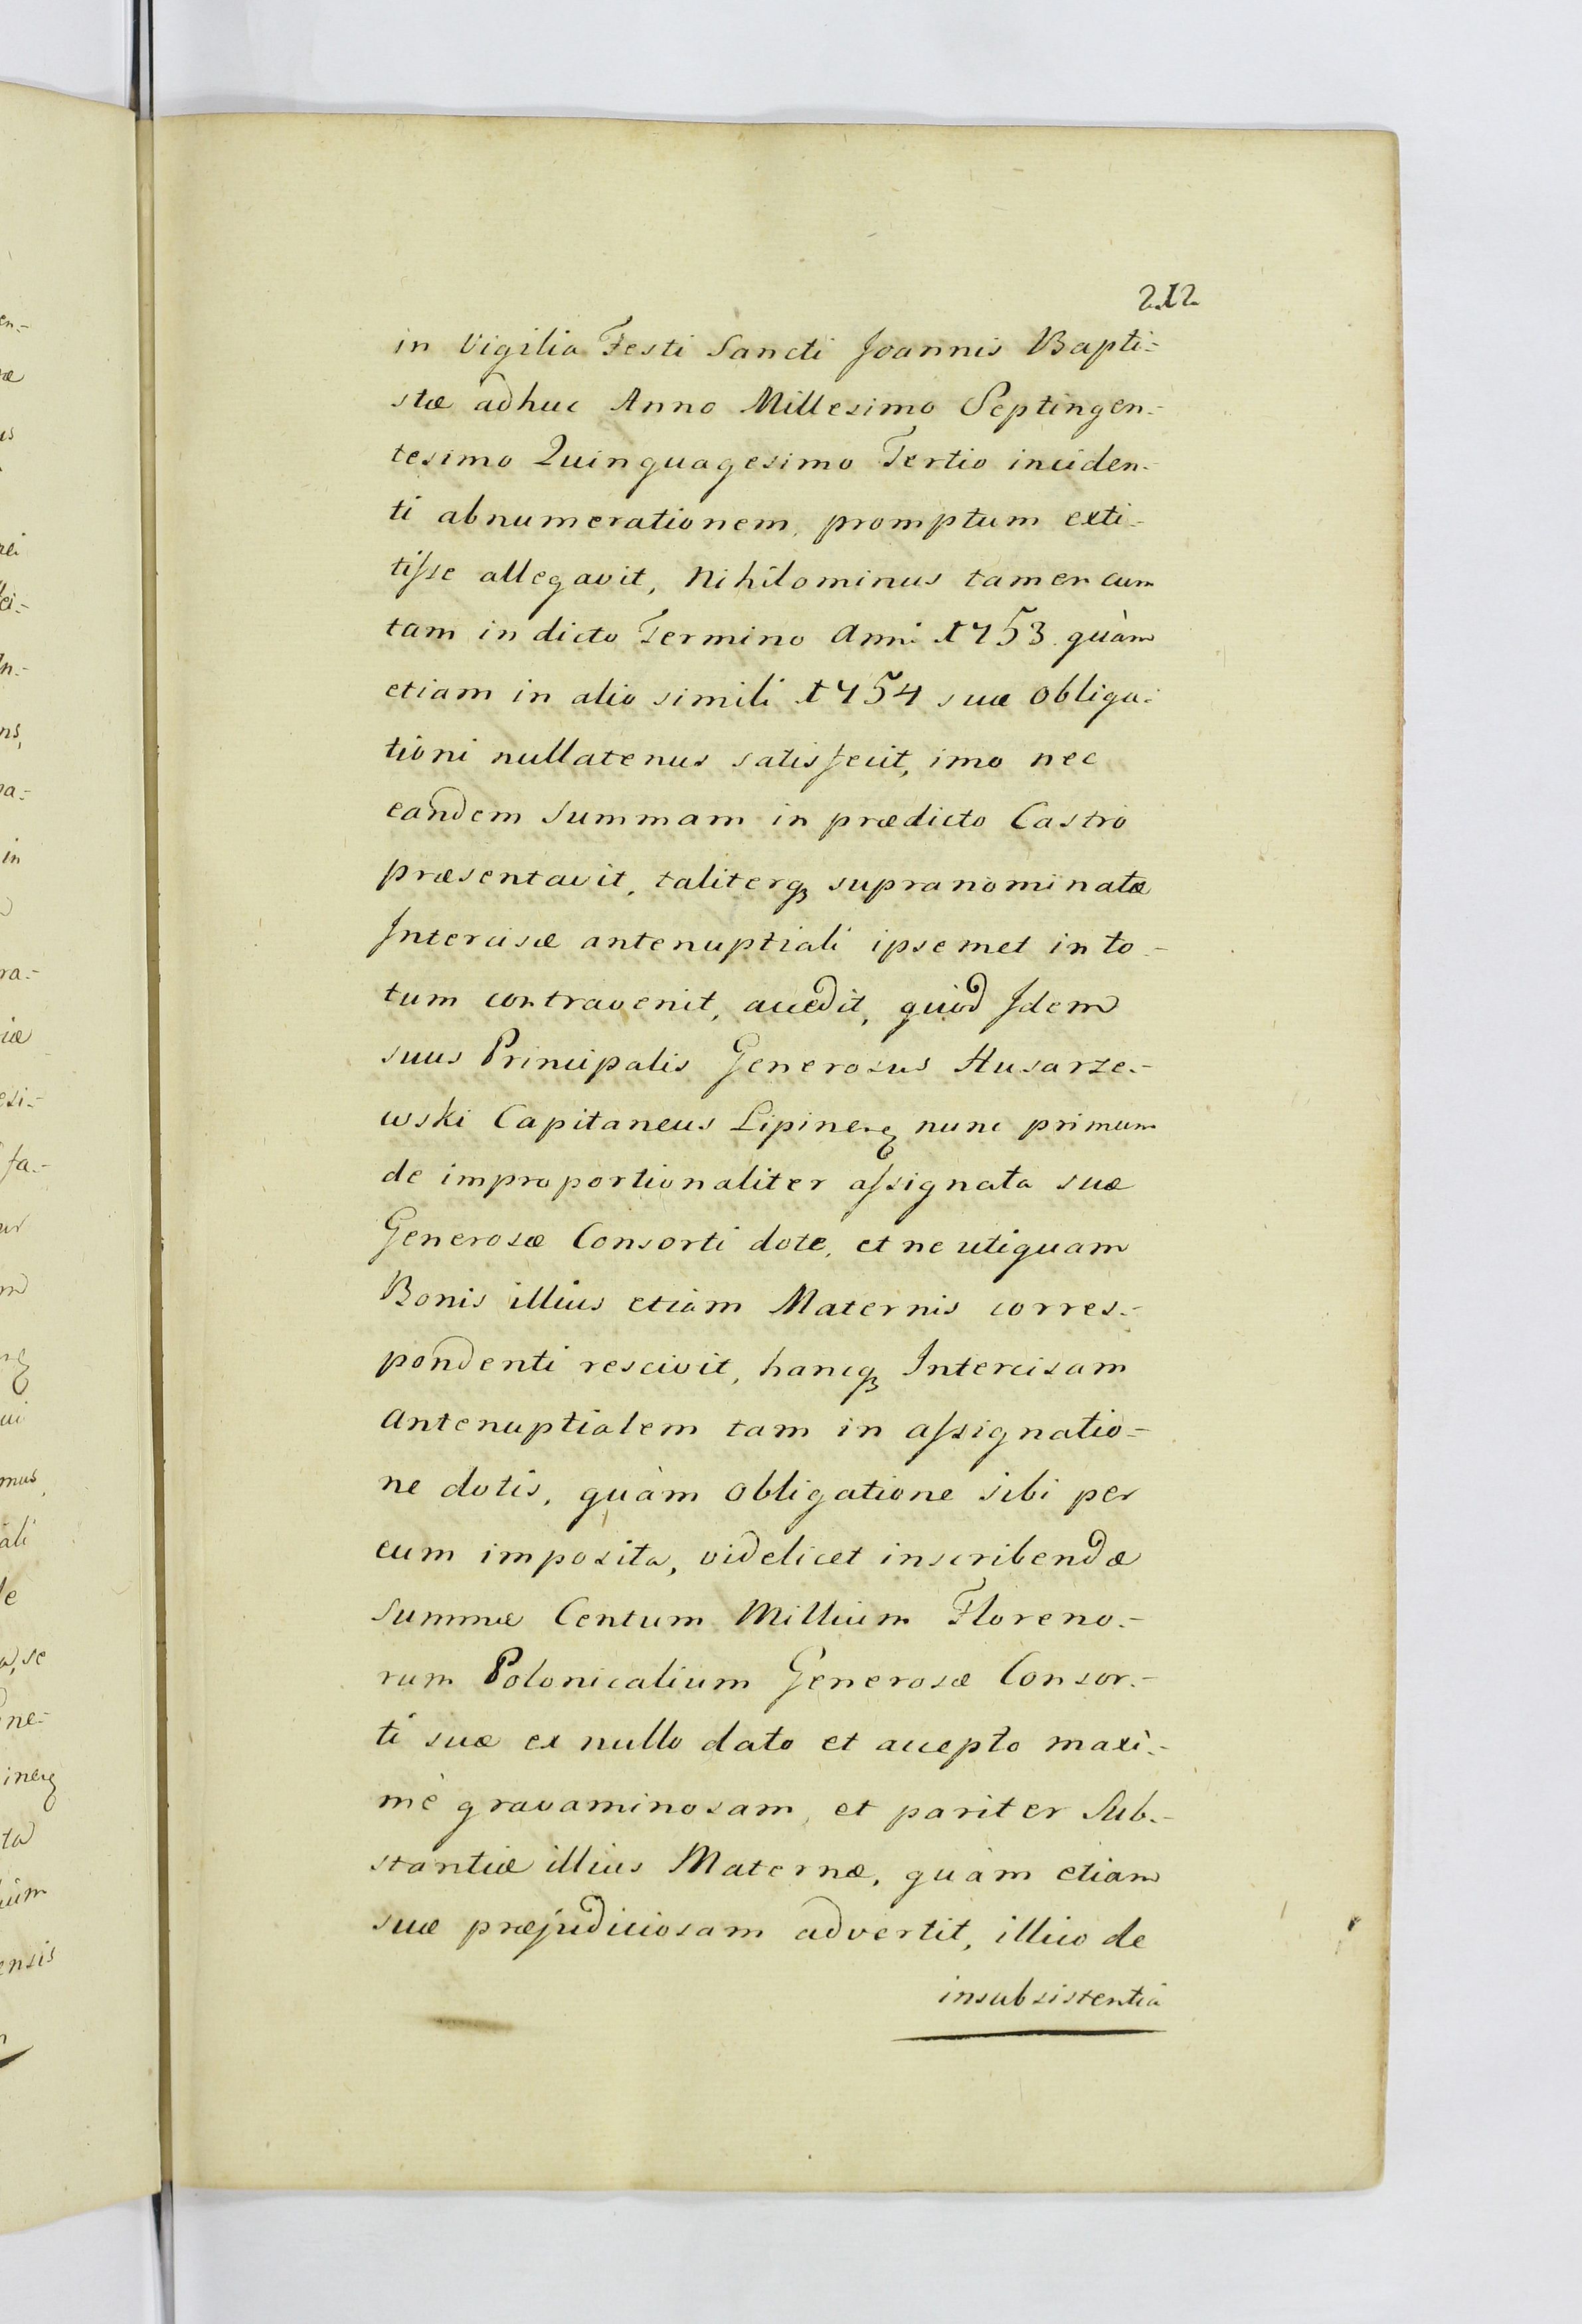 212
in Vigilia Festi Sancti Joannis Bapti-
stæ adhuc Anno Millesimo Septingen-
tesimo Quinquagesimo Tertio inciden-
ti abnumerationem, promptum exti-
tiſse allegavit, Nihilominus tamen cum
tam in dicto Termino Anni 1753 quàm
etiam in alio simili 1754 suæ obliga-
tioni nullatenus satisfecit, imo nec
eandem Summam in prædicto Castro
præsentavit, taliterq₃ supranominatæ
Intercisæ antenuptiali ipsemet in to-
tum contravenit, accedit, quòd Idem
suus Principalis Generosus Husarze-
wski Capitaneus Lipineñ nunc primum
de improportionaliter aſsignata suæ
Generosæ Consorti dote, et ne utiquam
Bonis illius etiam Maternis corres-
pondenti rescivit, hancq₃ Intercisam
Antenuptialem tam in aſsignatio-
ne dotis, quàm obligatione sibi per
eum imposita, videlicet inscribendæ
Summæ Centum Millium Floreno-
rum Polonicalium Generosæ Consor-
ti suæ ex nullo dato et accepto maxi-
mè gravaminosam, et pariter Sub-
stantiæ illius Maternæ, quàm etiam
suæ præjudiciosam advertit, illico de
insubsistentia